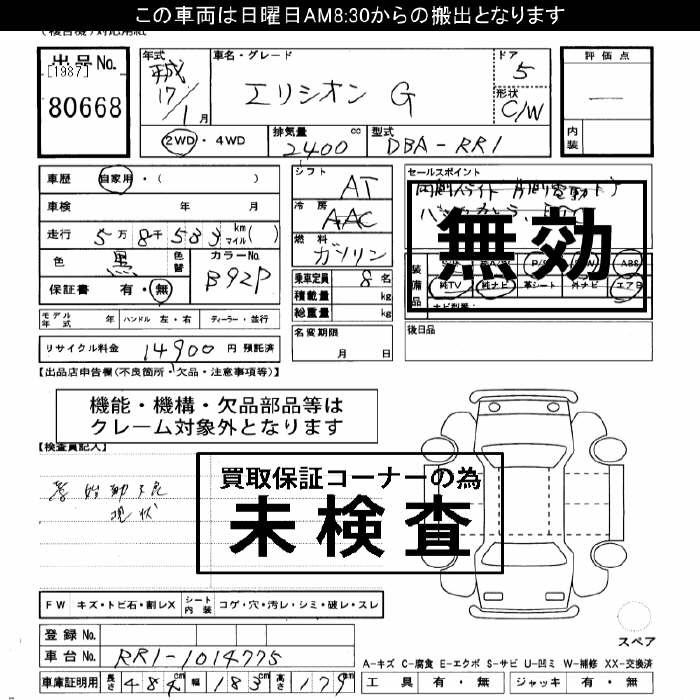 この車両は日曜日AM8:30からの搬出となります
(複合機)対応用紙
出品No.
[1987]
80668
年式
車名・グレード
ドア
評価点
17/1月
エリシオン G
5
形状
C/W
内装
2WD・4WD
排気量 cc
2400
型式
DBA-RR1
車歴 自家用・( )
車検 年 月
走行 5万8千533 km マイル( )
色 黒 色替 カラーNo. B92P
保証書 有・無
シフト AT
冷房 AAC
燃料 ガソリン
乗車定員 8名
積載量 kg
総重量 kg
セールスポイント
無効
装備品
純TV 純ナビ 革シート 外ナビ エアB
ABS
ナビ型番:
モデル年式 年 ハンドル 左・右 ディーラー・並行
名変期限
月 日
後日品
リサイクル料金 14900 円 預託済
【出品店申告欄(不良箇所・欠品・注意事項等)】
機能・機構・欠品部品等は
クレーム対象外となります
【検査員記入】
買取保証コーナーの為
未検査
始動不良
現状
FW キズ・トビ石・割レX シート内装 コゲ・穴・汚レ・シミ・破レ・スレ
登録No.
スペア
車台No. RR1-1014775
A-キズ C-腐食 E-エクボ S-サビ U-凹ミ W-補修 XX-交換済
車庫証明用 長さ 484cm 幅 183cm 高さ 179cm
工具 有・無 ジャッキ 有・無